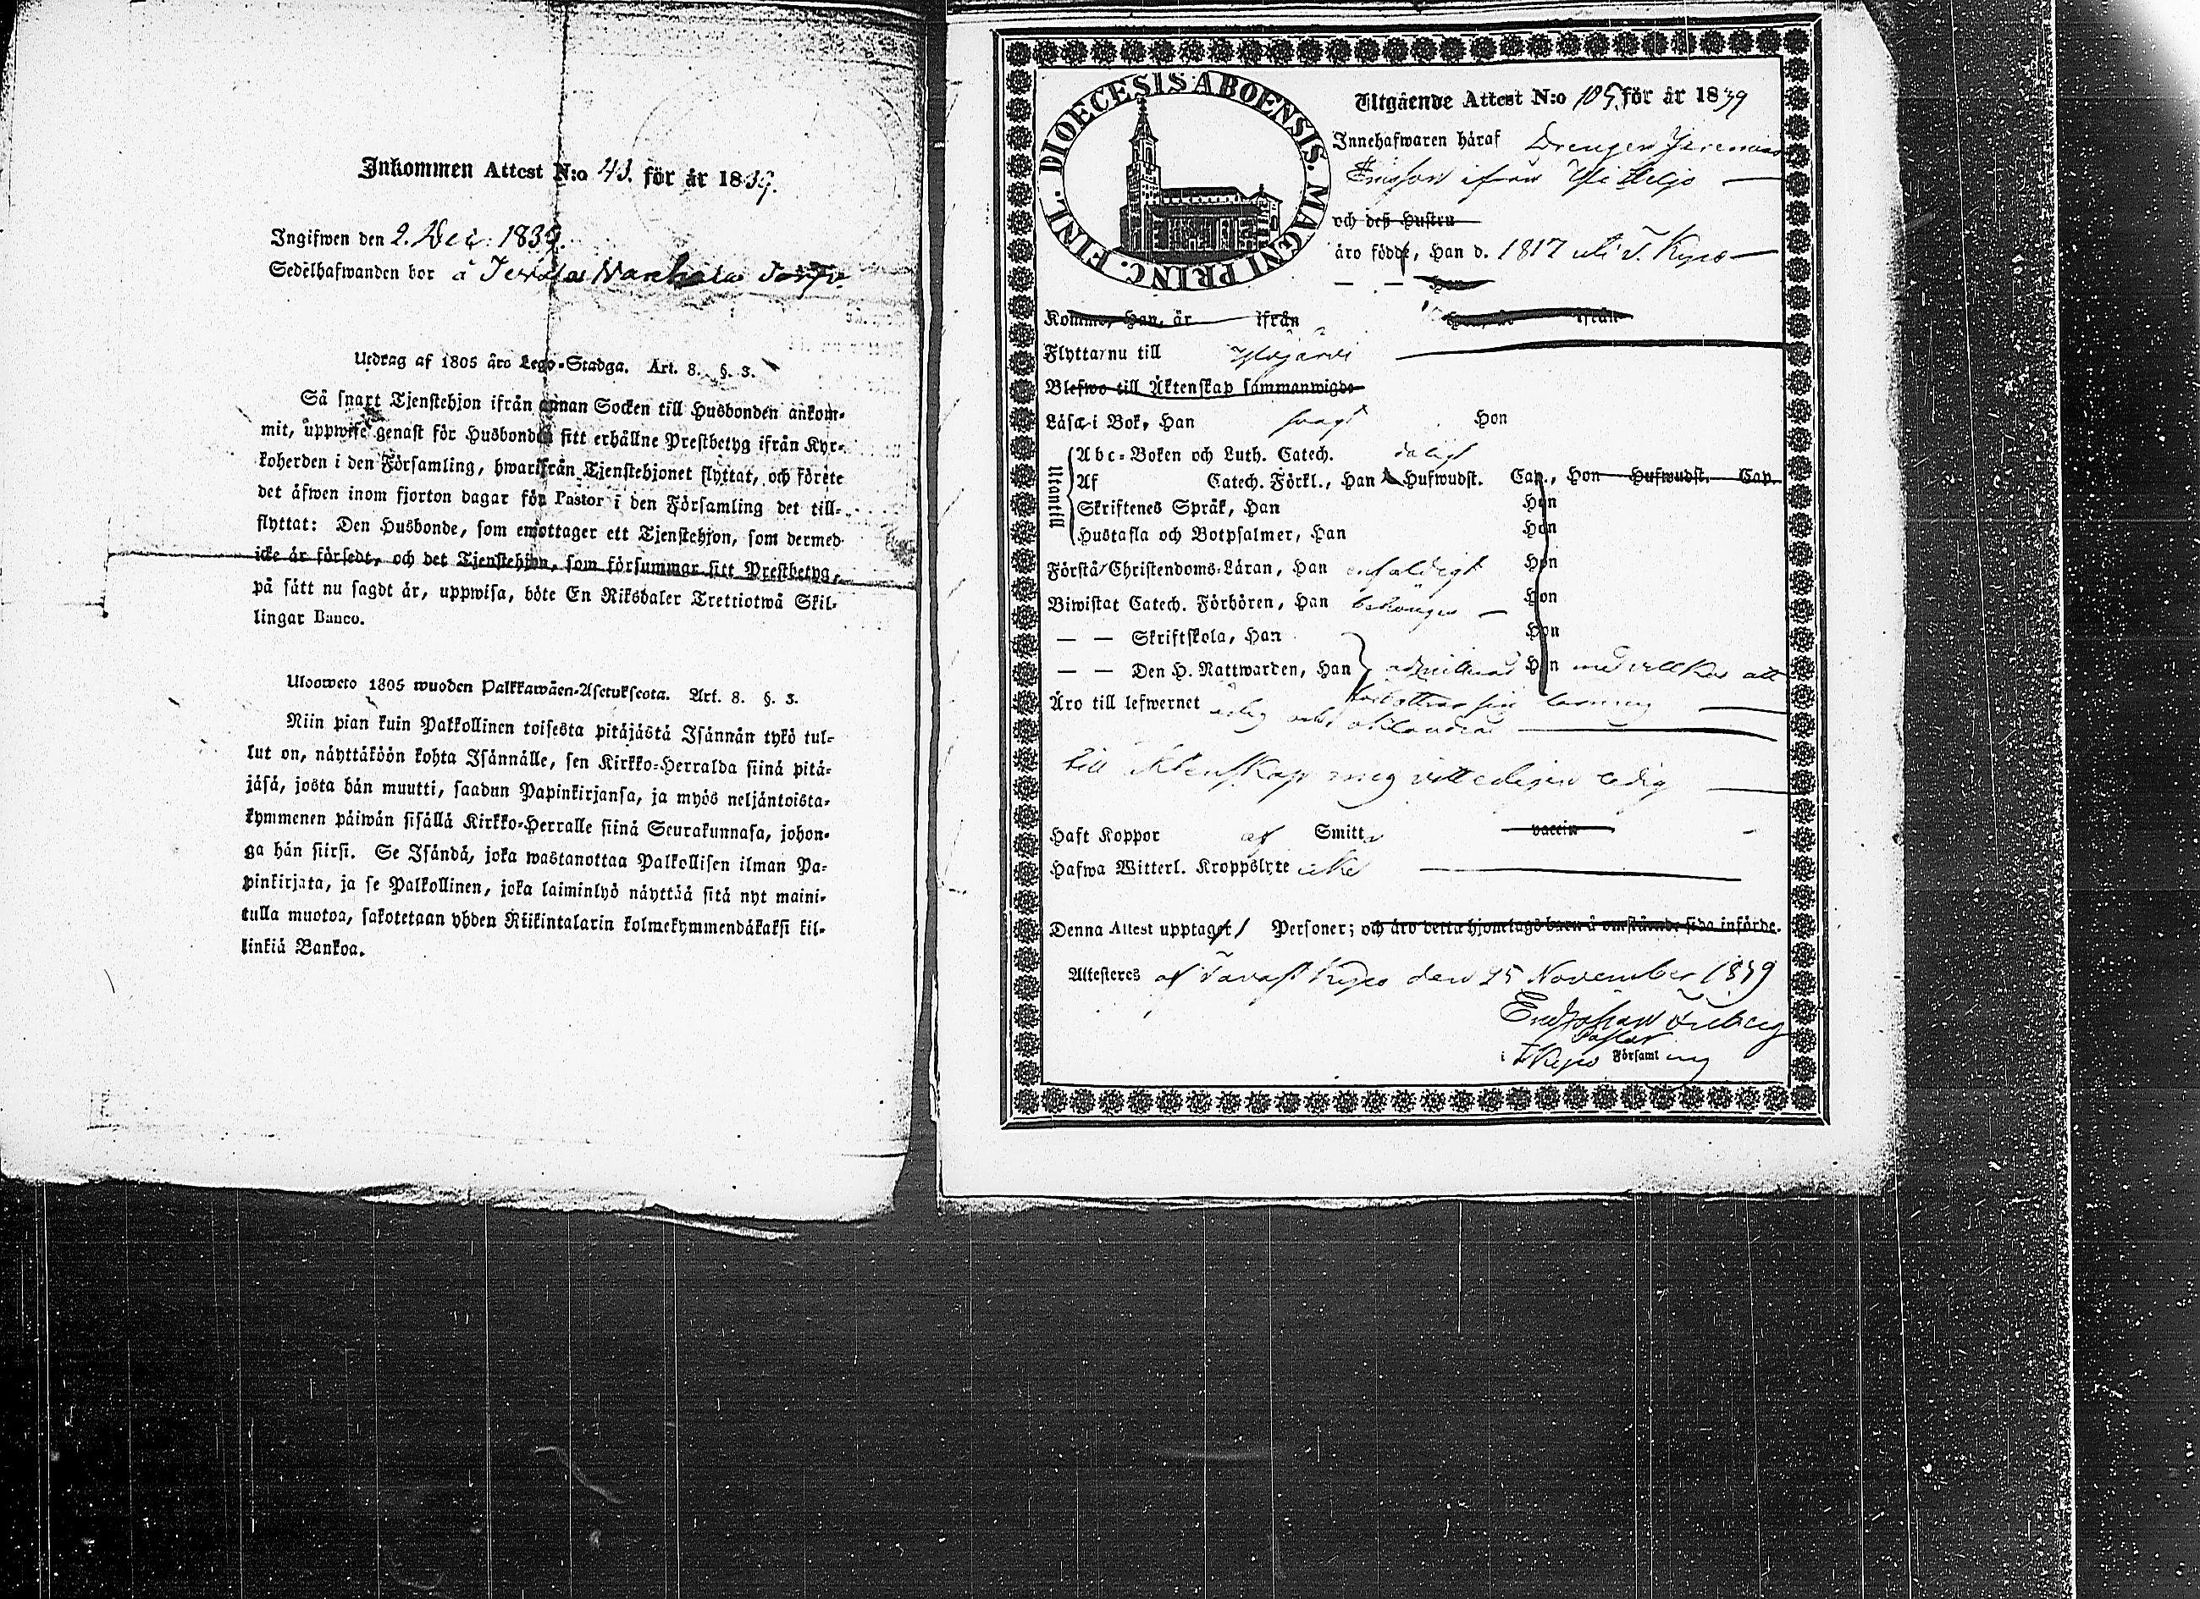 Inkommen Attest N:o 43. för år 1839.
Ingifwen den 2. Dec: 1839.
Sedelhafwanden bor å
Utdrag af 1805 års Lego-Stadga. Art. 8. §. 3.
Så snart Tjenstehjon ifrån annan Socken till Husbonden ankom-
mit, uppwise genast för Husbonden sitt erhållne Prestbetyg ifrån Kyr-
koherden i den Församling, hwarifrån Tjenstehjonet flyttat, och förete
det äfwen inom fjorton dagar för Pastor i den Församling det till-
flyttat: Den Husbonde, som emottager ett Tjenstehjon, som dermed
icke är försedt, och det Tjenstehjon, som försummar sitt Prestbetyg,
på sätt nu sagdt är, uppwisa, böte En Riksdaler Trettiotwå Skil-
lingar Banco.
Ulosweto 1805 wuoden Palkkawäen-Asetuksesta. Art. 8. §. 3.
Niin pian kuin Palkollinen toisesta pitäjästä Isännän tykö tul-
lut on, näyttäköön kohta Isännälle, sen Kirkko-Herralda siinä pitä-
jäsä, josta hän muutti, saadun Papinkirjansa, ja myös neljäntoista-
kymmenen päiwän sisällä Kirkko-Herralle siinä Seurakunnasa, johon-
ga hän siirsi. Se Isändä, joka wastanottaa Palkollisen ilman Pa-
pinkirjata, ja se Palkollinen, joka laiminlyö näyttää sitä nyt maini-
tulla muotoa, sakotetaan yhden Riikintalarin kolmekymmendäkaksi kil-
linkiä Bankoa.
FINL. DIOECESIS ABOENSIS. MAGNI PRINC.
Utgående Attest N:o 105. för år 1839
Innehafwaren häraf Drengen Jeremias
ifrån
och deß Hustru
äro födde, Han d. 1817 uti T. Kyro
Komne, Han, år ifrån ifrån
Flyttar nu till Ylöjärvi
Blefwo till Äktenskap sammanwigde
Läsa i Bok, Han svagt Hon
Utantill
Abc-Boken och Luth. Catech. dåligt
Af Catech. Förkl., Han Hufwudst. Cap., Hon Hufwudst. Cap.
Skriftenes Språk, Han Hon
Hustafla och Botpsalmer, Han Hon
Förstå Christendoms-Läran, Han enfaldigt Hon
Biwistat Catech. Förhören, Han behörigen Hon
— — Skriftskola, Han Hon
— — Den H. Nattwarden, Han admitteras Hon med villkor att
förbättrar sin läsning
Äro till lefwernet ärlig och oklandrad
till Äktenskap mig vitterligen ledig
Haft Koppor af Smitta vaccin
Hafwa Witterl. Kroppslyte icke
Denna Attest upptager 1 Personer; och äro detta hjonelags barn å omstående sida införde.
Attesteres af Tavast Kyro den 25 November 1839
Pastor
i T Kyro Församling